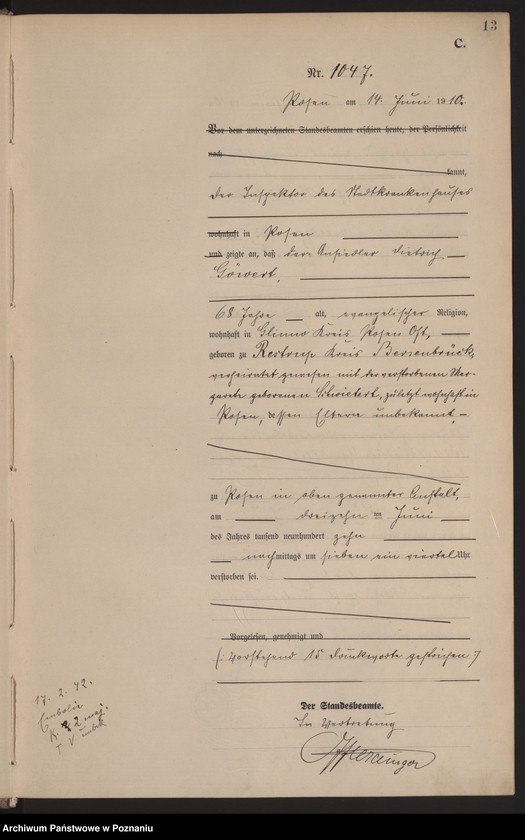 13
C.
Nr. 1047.
Posen am 14. Juni 1910.
Vor dem unterzeichneten Standesbeamten erschien heute, der Persönlichkeit
nach
kannt,
der Inspektor des Stadtkrankenhauses
wohnhaft in Posen
und zeigte an, daß der Ansiedler Dietrich
Göwert,
68 Jahre alt, evangelischer Religion,
wohnhaft in Glinno Kreis Posen Ost,
geboren zu Restrup Kreis Bersenbrück,
verheiratet gewesen mit der verstorbenen Mar-
garete geborenen Schwietert, zuletzt wohnhaft in
Posen, dessen Eltern unbekannt,
zu Posen in oben genannter Anstalt,
am dreizehn ten Juni
des Jahres tausend neunhundert zehn
nachmittags um sieben ein viertel Uhr
verstorben sei.
Vorgelesen, genehmigt und
(: Vorstehend 15 Druckworte gestrichen :)
Der Standesbeamte.
In Vertretung
17. 2. 42.
K. 2
T. V
Archiwum Państwowe w Poznaniu